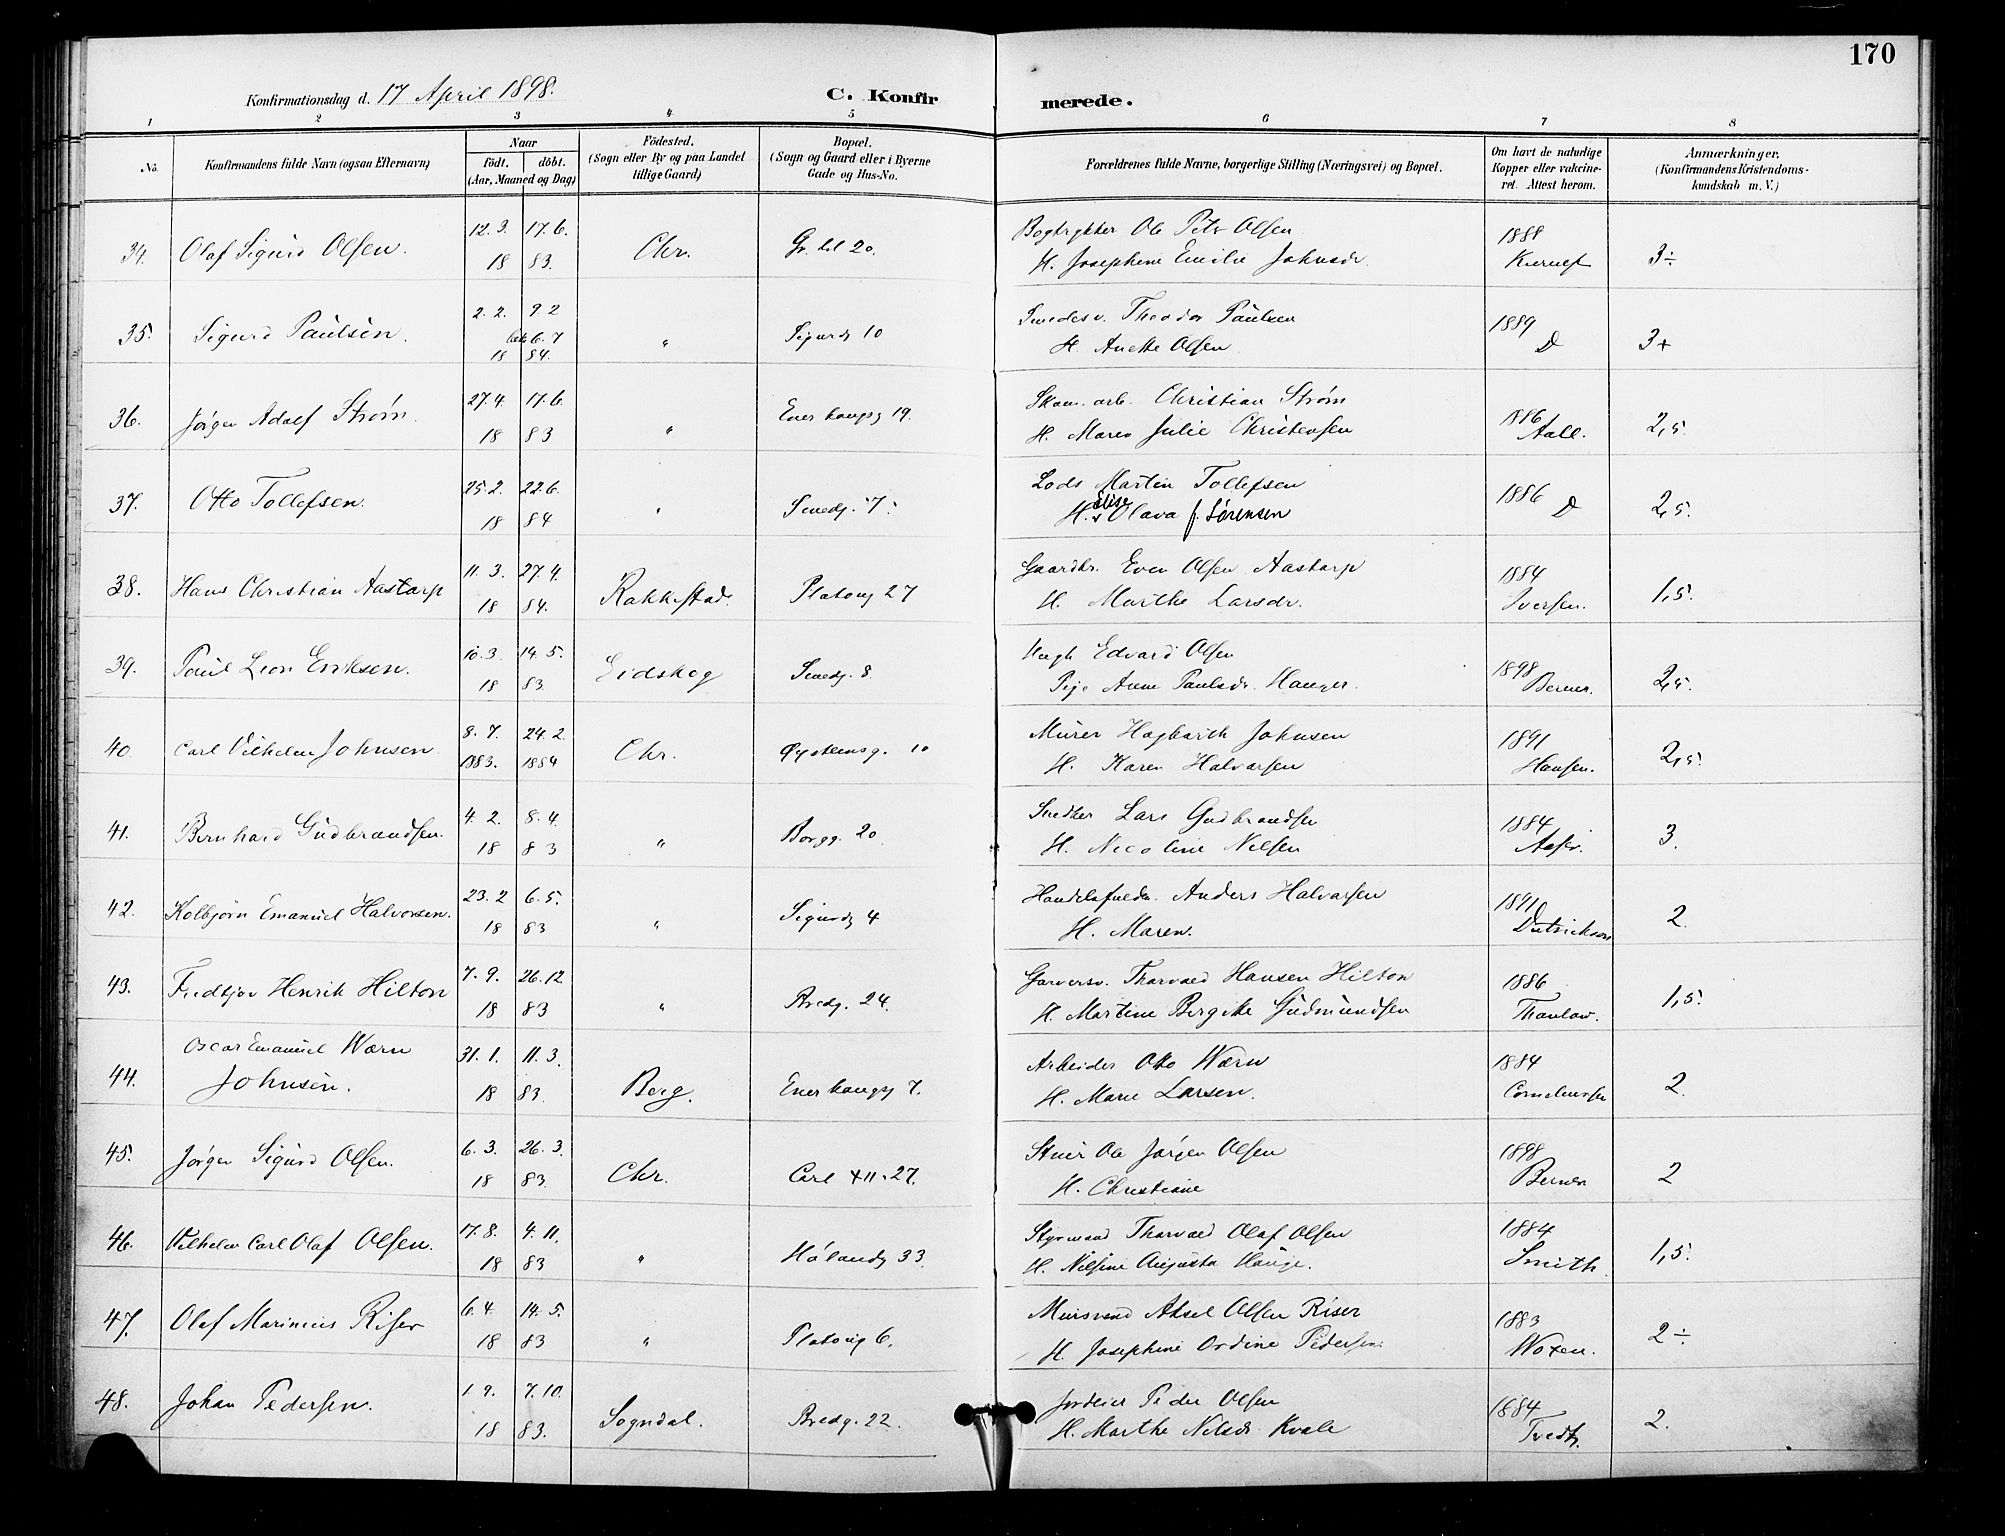 170
Konfirmationsdag d. 17 April 1898.
C. Konfir merede.
1 2 3 4 5 6 7 8
No. Konfirmandens fulde Navn (ogsaa Efternavn)
Naar
født. døbt.
(Aar, Maaned og Dag)
Fødested.
(Sogn eller By og paa Landet
tillige Gaard)
Bopæl.
(Sogn og Gaard eller i Byerne
Gade og Hus-No.
Forældrenes fulde Navne, borgerlige Stilling (Næringsvei) og Bopæl.
Om havt de naturlige
Kopper eller vakcine-
ret. Attest herom.
Anmærkninger.
(Konfirmandens Kristendoms-
kundskab m. V.)
34. Olaf Sigurd Olsen. 12. 3. 17. 6. 18 83. Chr. 20. Bogtrykker Ole Petr Olsen
H. Josephine Emilie Johnsdr. 1888 3÷
35. Sigurd Paulsen. 2. 2. 9 2 6. 7 18 84. " Sigurdg 10 Smedesv. Theodor Paulsen
H. Anette Olsen 1889 D 3+
36. Jørgen Adolf Strøm. 27. 4. 17. 6. 18 83 " Enerhaugsg 19. Skom. arb. Christian Strøm
H. Maren Julie Christensen 1886 Aall. 2,5.
37. Otto Tollefsen. 25. 2. 22. 6. 18 84 " Smedg. 7. Lods Martin Tollefsen
H. Elise Olava f. Sørensen 1886 D 2,5.
38. Hans Christian Aastorp 11. 3. 27. 4. 18 84. Rakkestad. Platoug 27 Gaardbr. Even Olsen Aastorp
H. Marthe Larsdr. 1884 Iversen. 1,5.
39. Paul Leon Eriksen. 10. 3. 14. 5. 18 83. Eidskog Smedg. 8. Edvard Olsen
Pige Anne Paulsdr. Hanger. 1898 Berner. 2,5.
40. Carl Vilhelm Johnsen 8. 7. 24. 2. 1883. 1884 Chr. Øysteinsg. 10 Murer Hagbarth Johnsen
H. Karen Halvorsen 1891 Hansen. 2,5.
41. Bernhard Gudbrandsen. 4. 2. 8. 4. 18 83 " Borgg. 20. Snedker Lars Gudbrandsen
H. Nicoline Nilsen 1884 3.
42. Kolbjørn Emanuel Halvorsen. 23. 2 6. 5. 18 83 " Sigurdg 4 Handelsfuldm. Anders Halvorsen
H. Maren. 1891 Dietrickson 2.
43. Fredtjov Henrik Hilton 7. 9. 26. 12. 18 83 " Bredg. 24. Garversv. Thorvald Hansen Hilton
H. Martine Bergitte Gudmundsen 1886 Thaulow. 1,5.
44. Oscar Emanuel Wærn
Johnsen. 31. 1. 11. 3. 18 83. Berg. Enerhaugsg 7. Arbeider Otto Wærn
H. Marie Larsen. 1884 Corneliussen 2.
45. Jørgen Sigurd Olsen. 6. 3. 26. 3. 18 83. Chr. Carl XII. 27. Stuer Ole Jørgen Olsen
H. Christiane 1898 Berner 2
46. Vilhelm Carl Olaf Olsen. 17. 8. 4. 11. 18 83 " Hølandg 33. Styrmand Thorvald Olaf Olsen
H. Nilsine Augusta Hauge. 1884 Smith. 1,5.
47. Olaf Marinius Riser 6. 4. 14. 5. 18 83 " Platoug 6. Mursvend Aksel Olsen Riser
H. Josephine Ordine Pedersen. 1883 Woxen. 2÷.
48. Johan Pedersen. 1. 9. 7. 10. 18 83. Sogndal. Bredg. 22. Jordeier Peder Olsen
H. Marthe Nilsdr. Kvale 1884 Tvedt. 2.